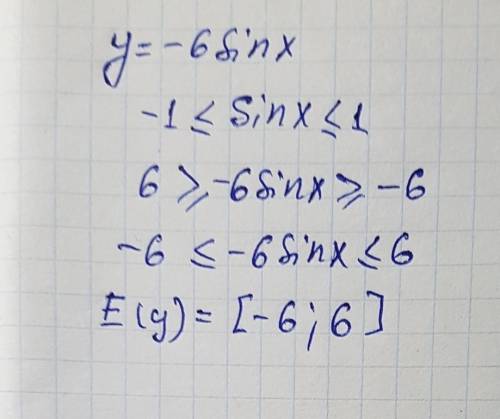 y = -6 sin x
-1 ≤ sin x ≤ 1
6 ≥ -6 sin x ≥ -6
-6 ≤ -6 sin x ≤ 6
E(y) = [-6; 6]